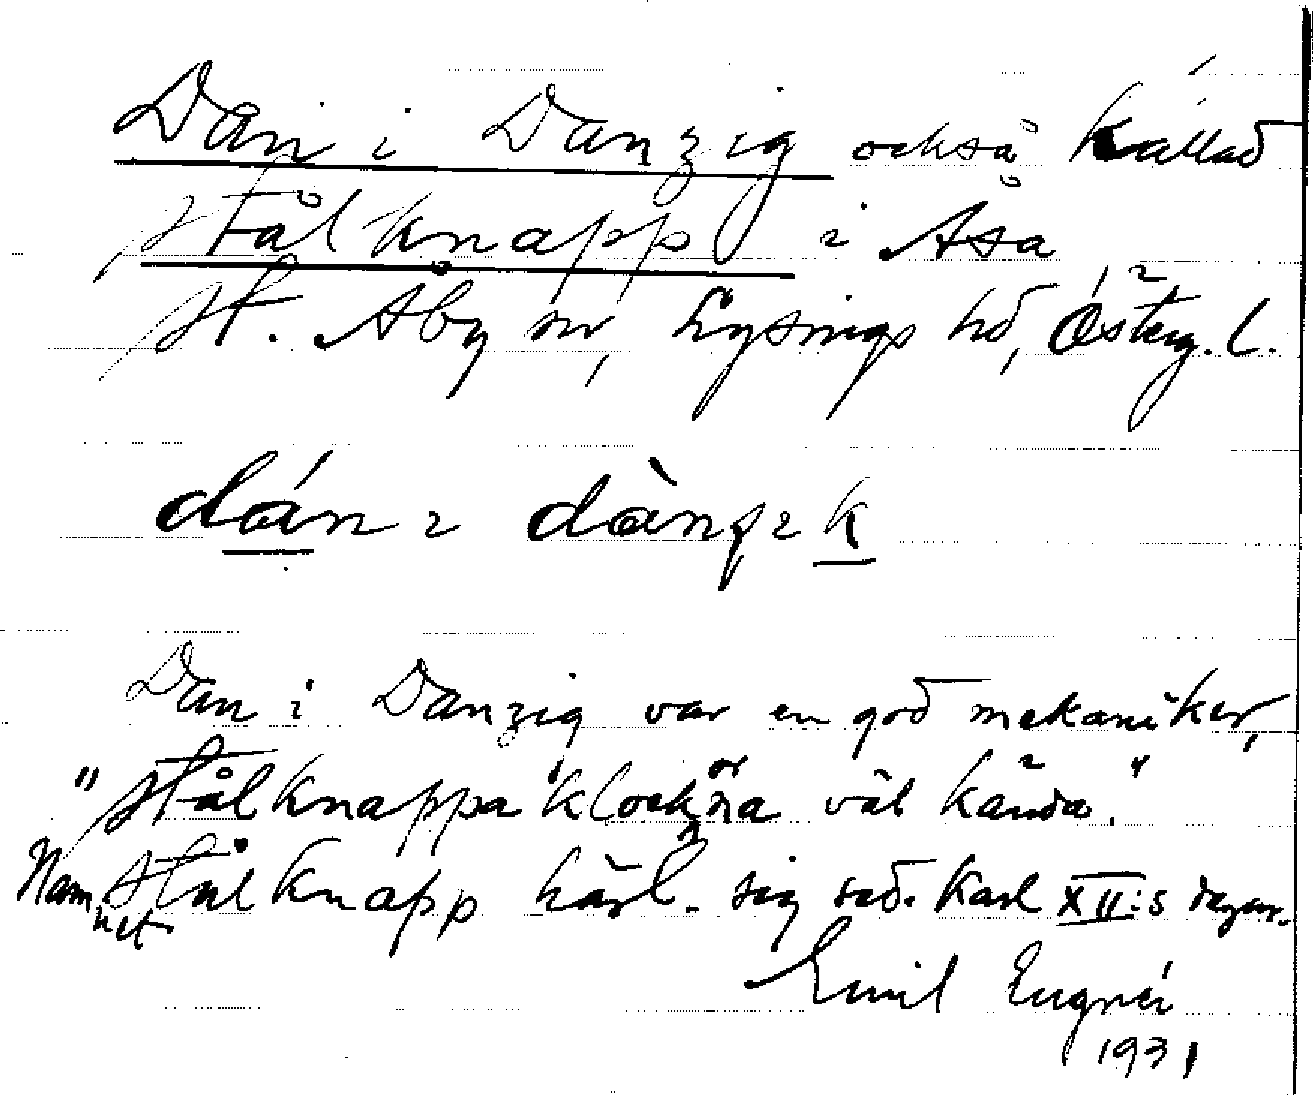 Dan i Danzig också kallad
Stålknapp i Åsa
St. Åby sn, Lysings hd, Österg. l.
dán ɩ dànʃɩk
Dan i Danzig var en god mekaniker,
"Stålknappaklockor na väl kända."
Namnet Stålknapp härl. sig sed. Karl XII:s dagar.
Emil
1931